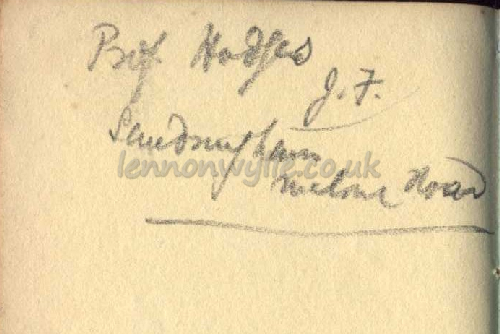 Prof Hodges
J. F.
Sandringham
lennonwylie.co.uk
Malone Road